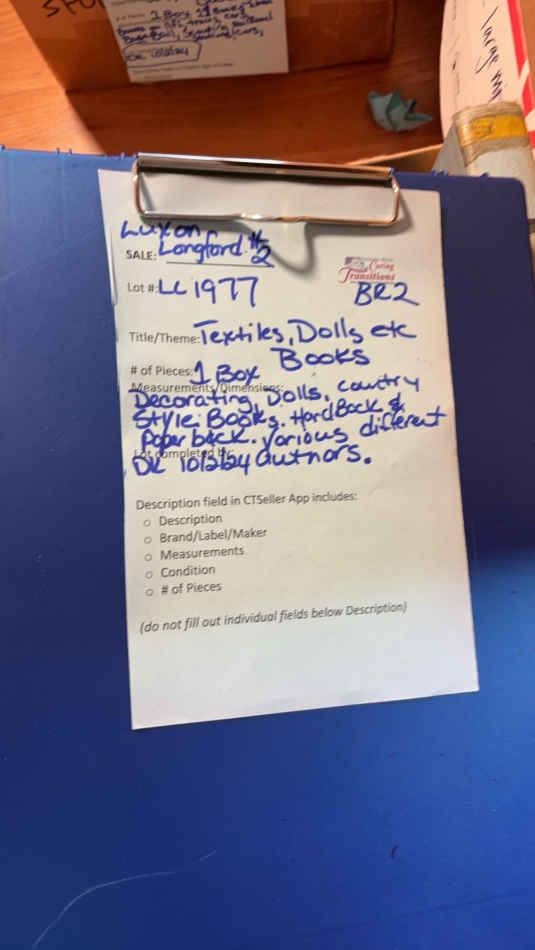 1 Box
OK lobby
large mi
Luxon
SALE: Longford #2
Caring
Transitions
Lot #: LC 1977
BR2
Title/Theme: Textiles, Dolls etc
Books
# of Pieces: 1 Box
Measurements/Dimensions:
Decorating, Dolls, country
Style Books. Hard Back &
Paper back. Various different
Lot completed by:
authors.
Description field in CTSeller App includes:
o Description
o Brand/Label/Maker
o Measurements
o Condition
o # of Pieces
(do not fill out individual fields below Description)